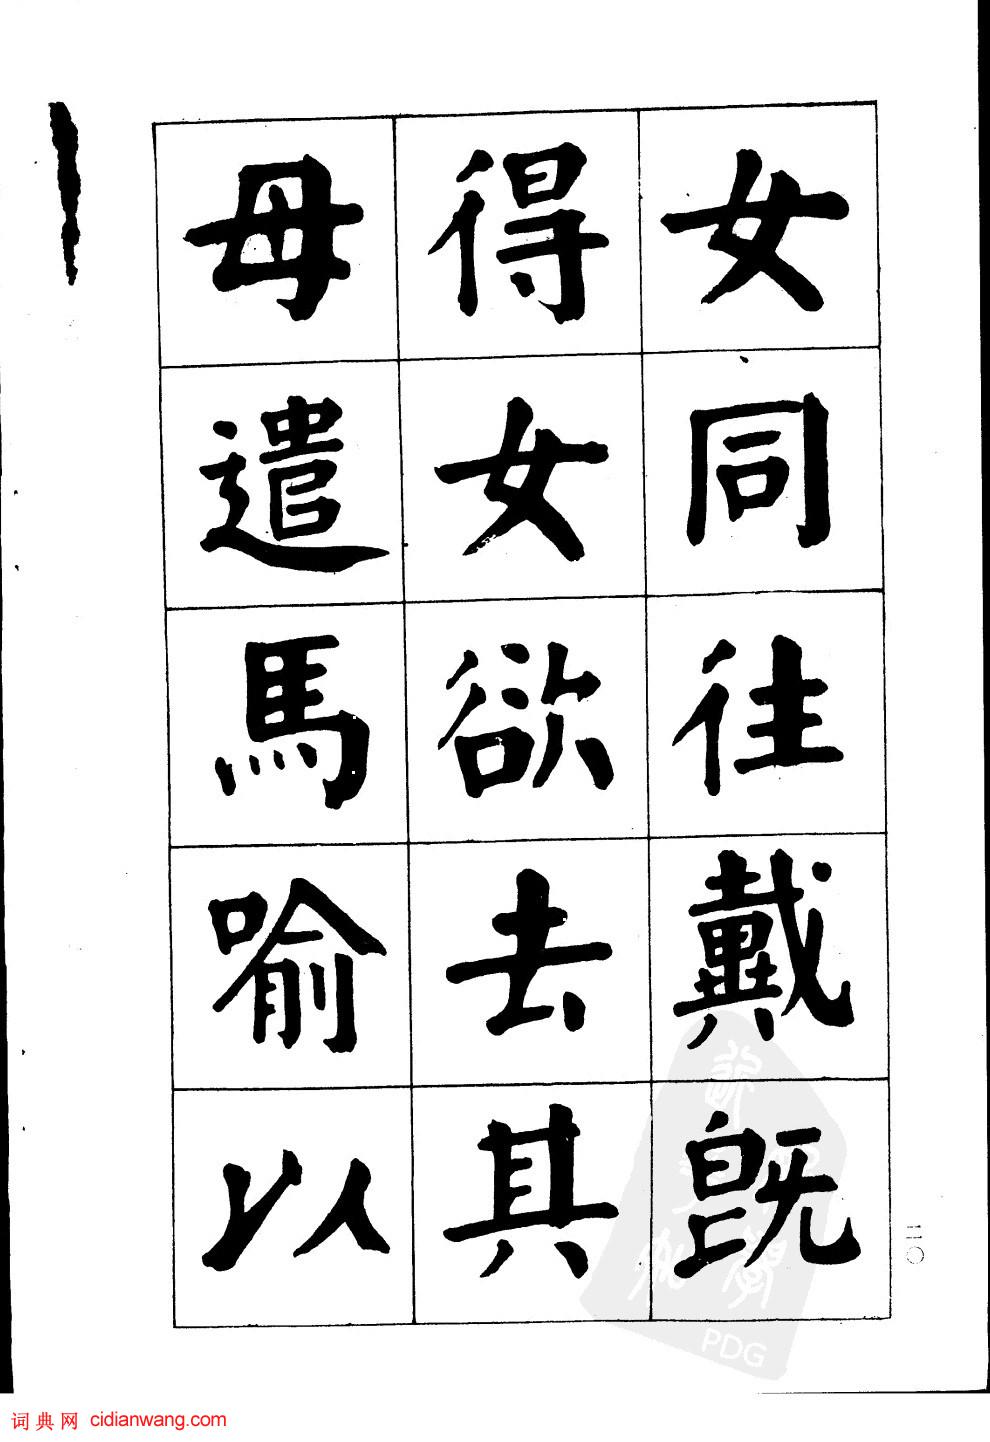 女同往戴既
得女欲去其
母遣馬喻以
一一〇
PDG
词典网 cidianwang.com